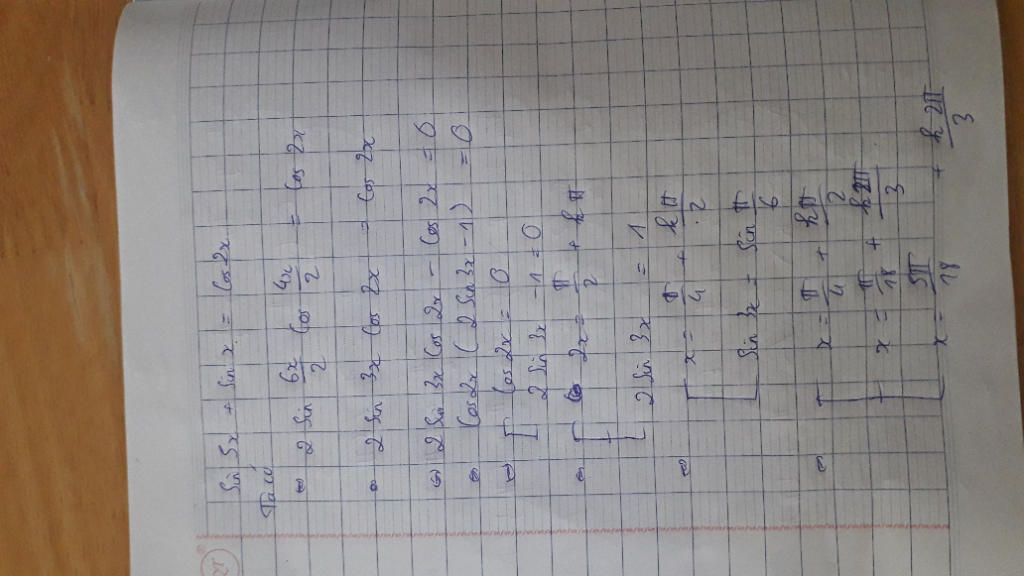 Sin 5x + Sin x = Cos 2x
Ta có
⇔ 2 Sin 6x/2 Cos 4x/2 = Cos 2x
⇔ 2 Sin 3x Cos 2x = Cos 2x
⇔ 2 Sin 3x Cos 2x - Cos 2x = 0
⇔ Cos 2x ( 2 Sin 3x - 1) = 0
⇔ [ Cos 2x = 0
2 Sin 3x - 1 = 0
⇔ [ 2x = π/2 + kπ
2 Sin 3x = 1
⇔ [ x = π/4 + kπ/2
Sin 3x = Sin π/6
⇔ [ x = π/4 + kπ/2
x = π/18 + k2π/3
x = 5π/18 + k2π/3